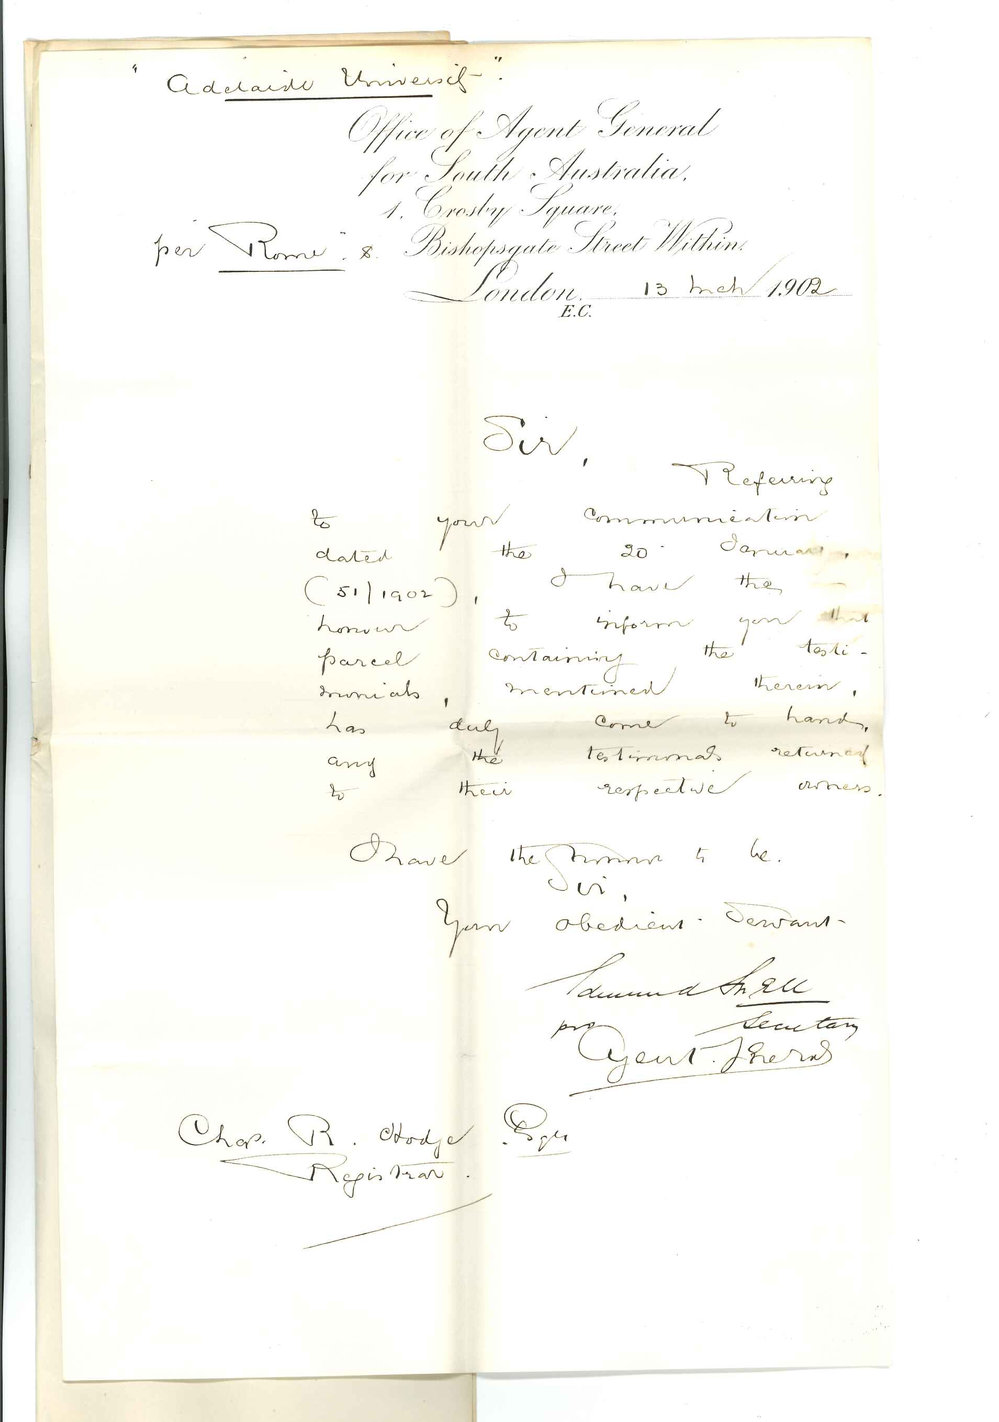 "Adelaide University".
Office of Agent General
for South Australia,
1, Crosby Square,
per "Rome". &. Bishopsgate Street Within,
London, 13 Mch 1902
E.C.
Sir,
Referring
to your communication
dated the 20 January,
(51/1902), I have the
honour to inform you that
parcel containing the testi-
monials, mentioned therein,
has duly come to hand,
and the testimonials returned
to their respective owners.
I have the honour to be.
Sir,
Your obedient Servant
Edmund Snell
Secretary
pro Agent. General
Chas. R. Hodge Esqre
Registrar.